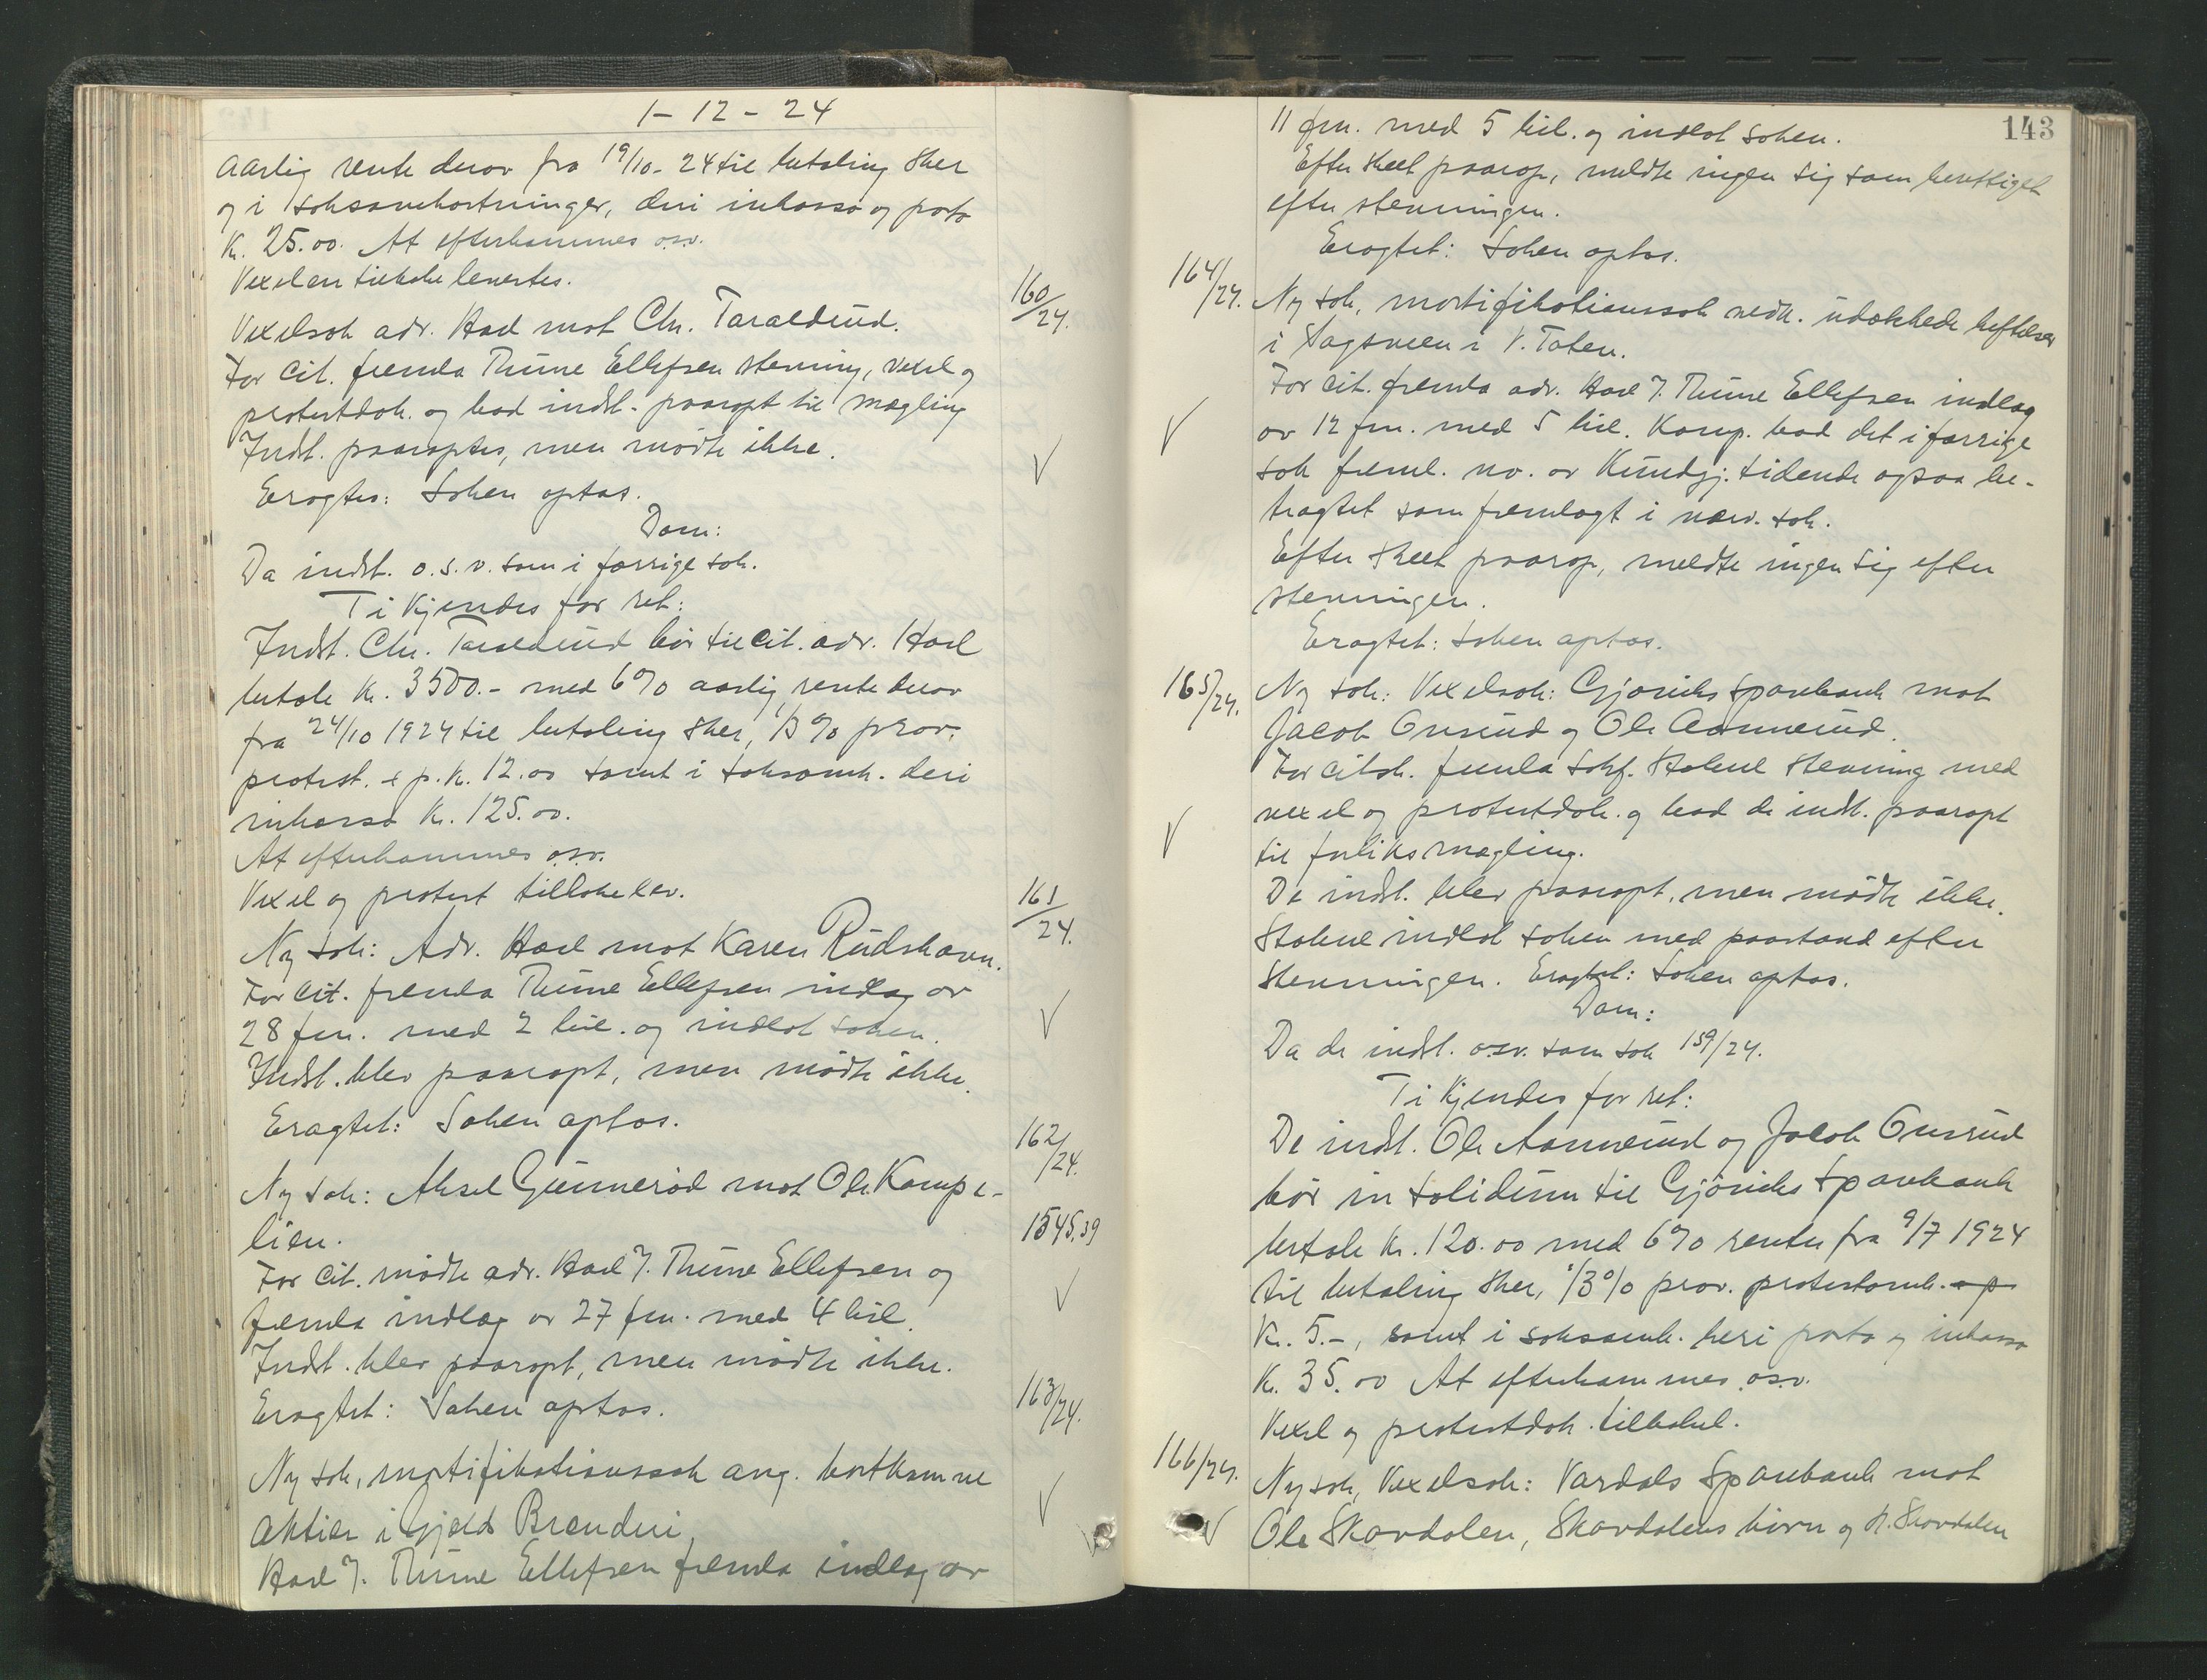 1-12-24
aarlig rente derav fra 19/10-24 til betaling sker
og i saksomkostninger, deri inkasso og porto
kr. 25.00. At efterkommes o.s.v.
Vexelen tilbakelevertes.
160/24.
Vexelsak adv. Hoel mot Chr. Taraldrud.
For cit. fremla Thune Ellefsen stevning, vexel og
protestdok. og bad indst. paaropt til mægling
Indst. paaroptes, men mødte ikke.
Eragtes: Saken optas.
Dom:
Da indst. o.s.v. som i forrige sak.
Ti kjendes for ret:
Indst. Chr. Taraldrud bør til cit. adv. Hoel
betale kr. 3500.- med 6% aarlig rente derav
fra 24/10 1924 til betaling sker, 1/3% prov.
protest. + p. kr. 12.00 samt i saksomk. deri
inkasso kr. 125.00.
At efterkommes o.s.v.
Vexel og protest tilbakelev.
161/24.
Ny sak: Adv. Hoel mot Karen Rudshavn.
For cit. fremla Thune Ellefsen indlæg av
28 fm. med 2 bil. og indlot saken.
Indst. blev paaropt, men mødte ikke.
Eragtet: Saken optas.
162/24.
Ny sak: Aksel Gunnerød mot Ole Kampe-
lien.
1545,39
For cit. mødte adv. Hoel f. Thune Ellefsen og
fremla indlæg av 27 fm. med 4 bil.
Indst. blev paaropt, men mødte ikke.
Eragtet: Saken optas.
163/24.
Ny sak, mortifikationssak ang. bortkomne
aktier i Gjølds Brænderi.
Hoel f. Thune Ellefsen fremla indlæg av
143
11 fm. med 5 bil. og indlot saken.
Efter skeet paarop, meldte ingen sig som berettiget
efter stevningen.
Eragtet: Saken optas.
164/24.
Ny sak, mortifikationssak vedk. udækkede heftelser
i Sagsveen i V. Toten.
For cit. fremla adv. Hoel f. Thune Ellefsen indlæg
av 12 fm. med 5 bil. Komp. bad det i forrige
sak freml. no. av Kundgj. tidende ogsaa be-
tragtet som fremlagt i nærv. sak.
Efter skeet paarop, meldte ingen sig efter
stevningen.
Eragtet: Saken optas.
165/24.
Ny sak: Vexelsak: Gjøviks Sparebank mot
Jacob Onsrud og Ole Aamerud.
For citsk. fremla Stolene stevning med
vexel og protestdok. og bad de indst. paaropt
til forliksmægling.
De indst. blev paaropt, men mødte ikke.
Stolene indlot saken med paastand efter
stevningen. Eragtet: Saken optas.
Dom:
Da de indst. o.s.v. som sak 159/24.
Ti kjendes for ret:
De indst. Ole Aamerud og Jacob Onsrud
bør in solidum til Gjøviks Sparebank
betale kr. 120.00 med 6% renter fra 9/7 1924
til betaling sker, 1/3% prov. protestomk. + p
Kr. 5.-, samt i saksomk. heri porto og inkasso
kr. 35.00 At efterkommes o.s.v.
Vexel og protestdok. tilbakel.
166/24.
Ny sak, Vexelsak: Vardals Sparebank mot
Ole Skovdalen, Skovdalens hørn og H. Skovdalen